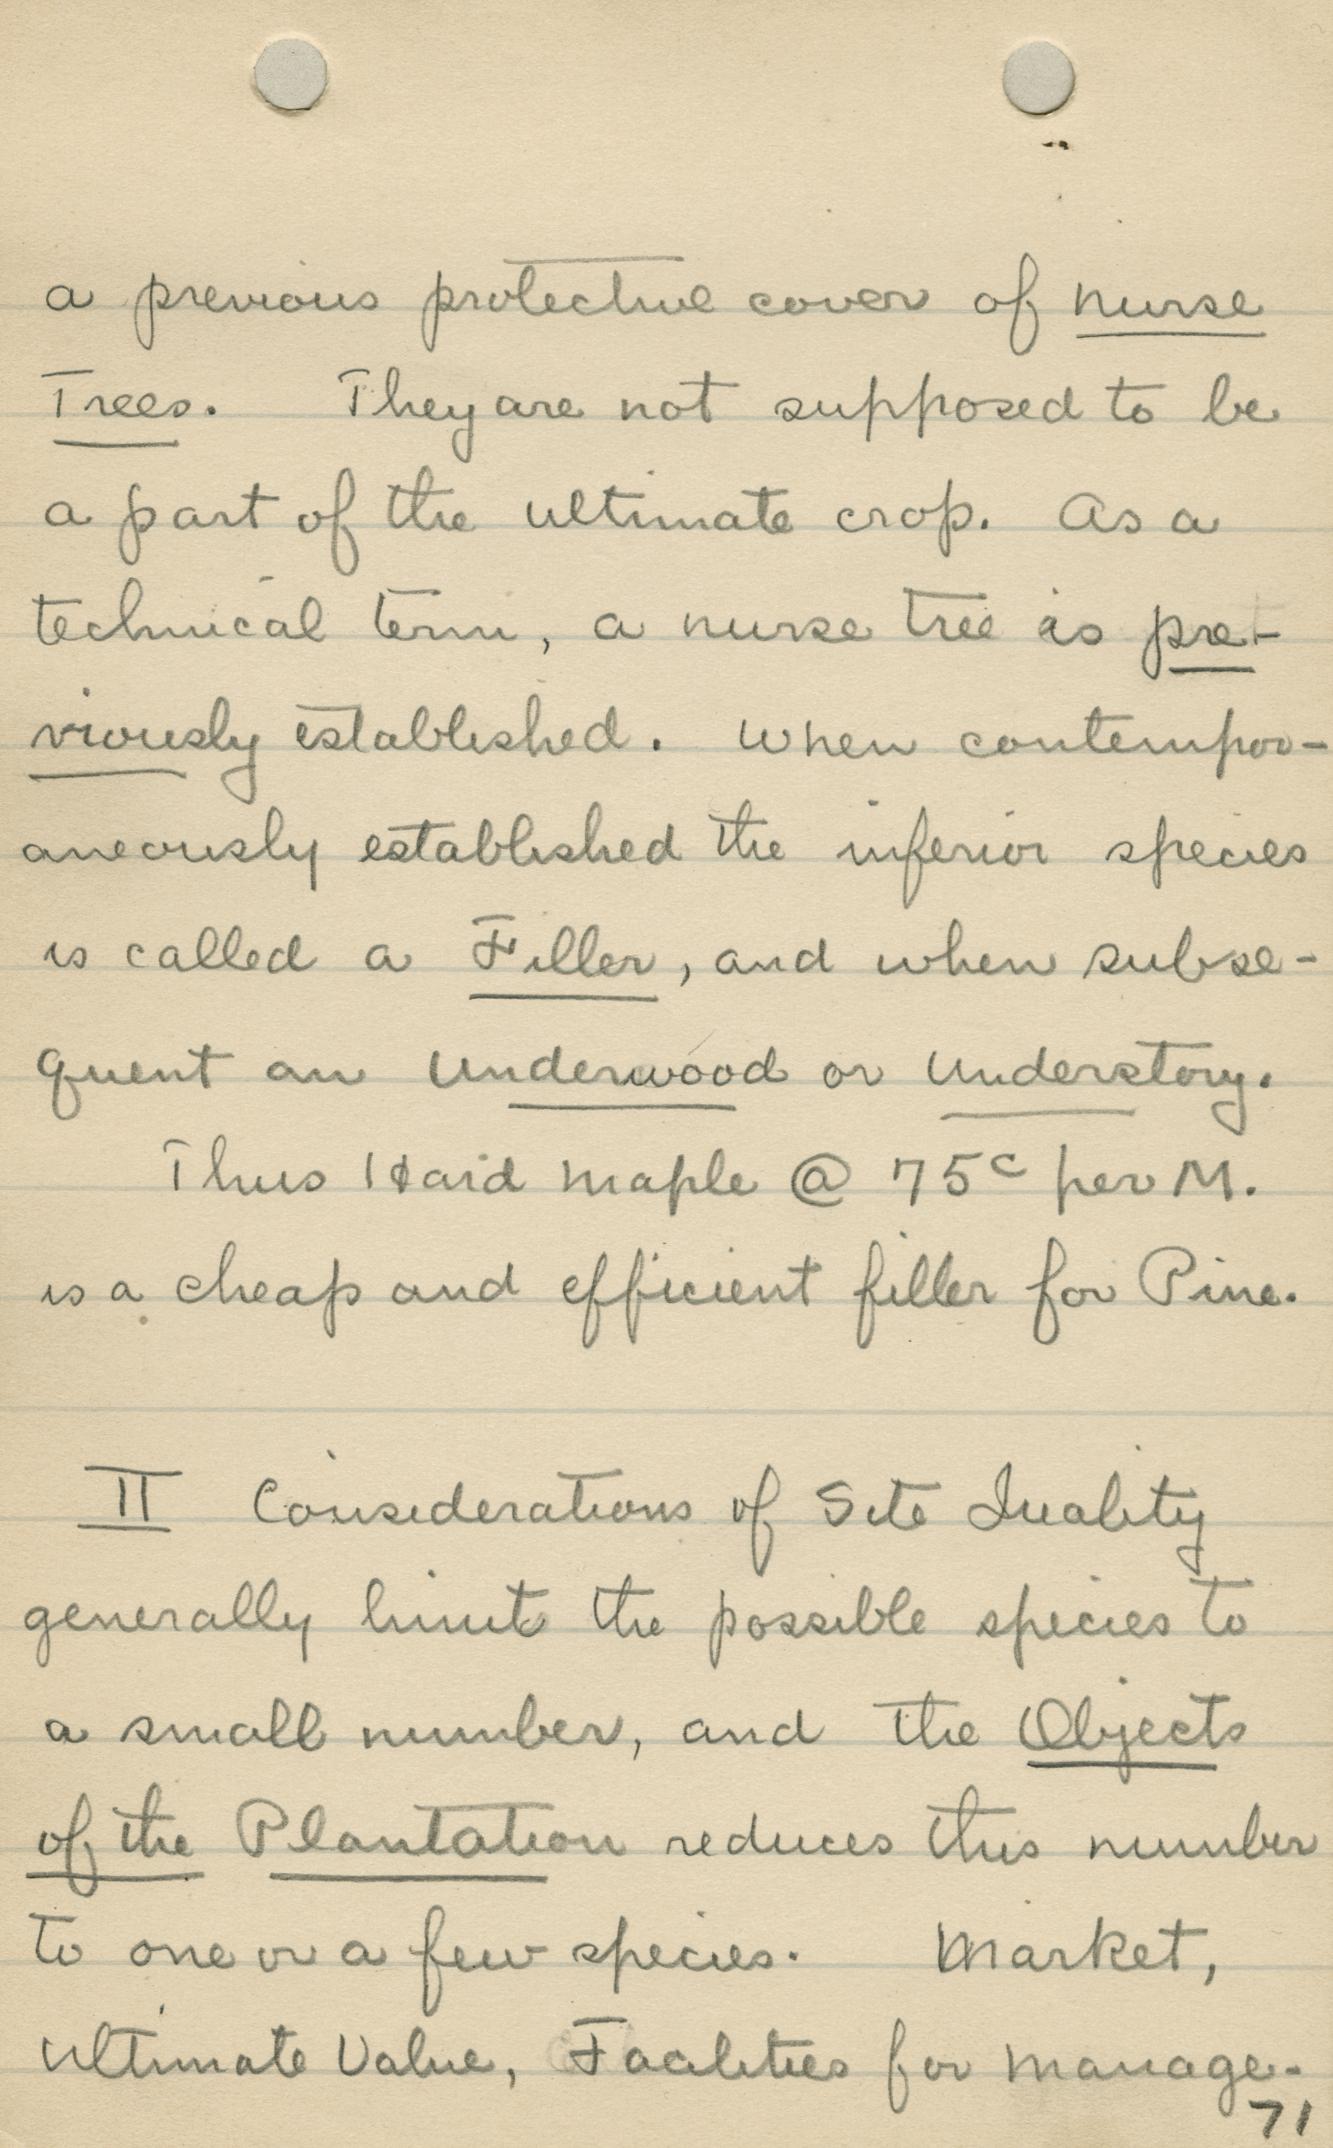 a previous protective cover of nurse
Trees. They are not supposed to be
a part of the ultimate crop. As a
technical term, a nurse tree is pre-
viously established. When contempor-
aneously established the inferior species
is called a Filler, and when subse-
quent an Underwood or Understory.
Thus Hard Maple @ 75c per M.
is a cheap and efficient filler for Pine.
II Considerations of Site Quality
generally limit the possible species to
a small number, and the Objects
of the Plantation reduces this number
to one or a few species. Market,
Ultimate Value, Facilities for manage-
71